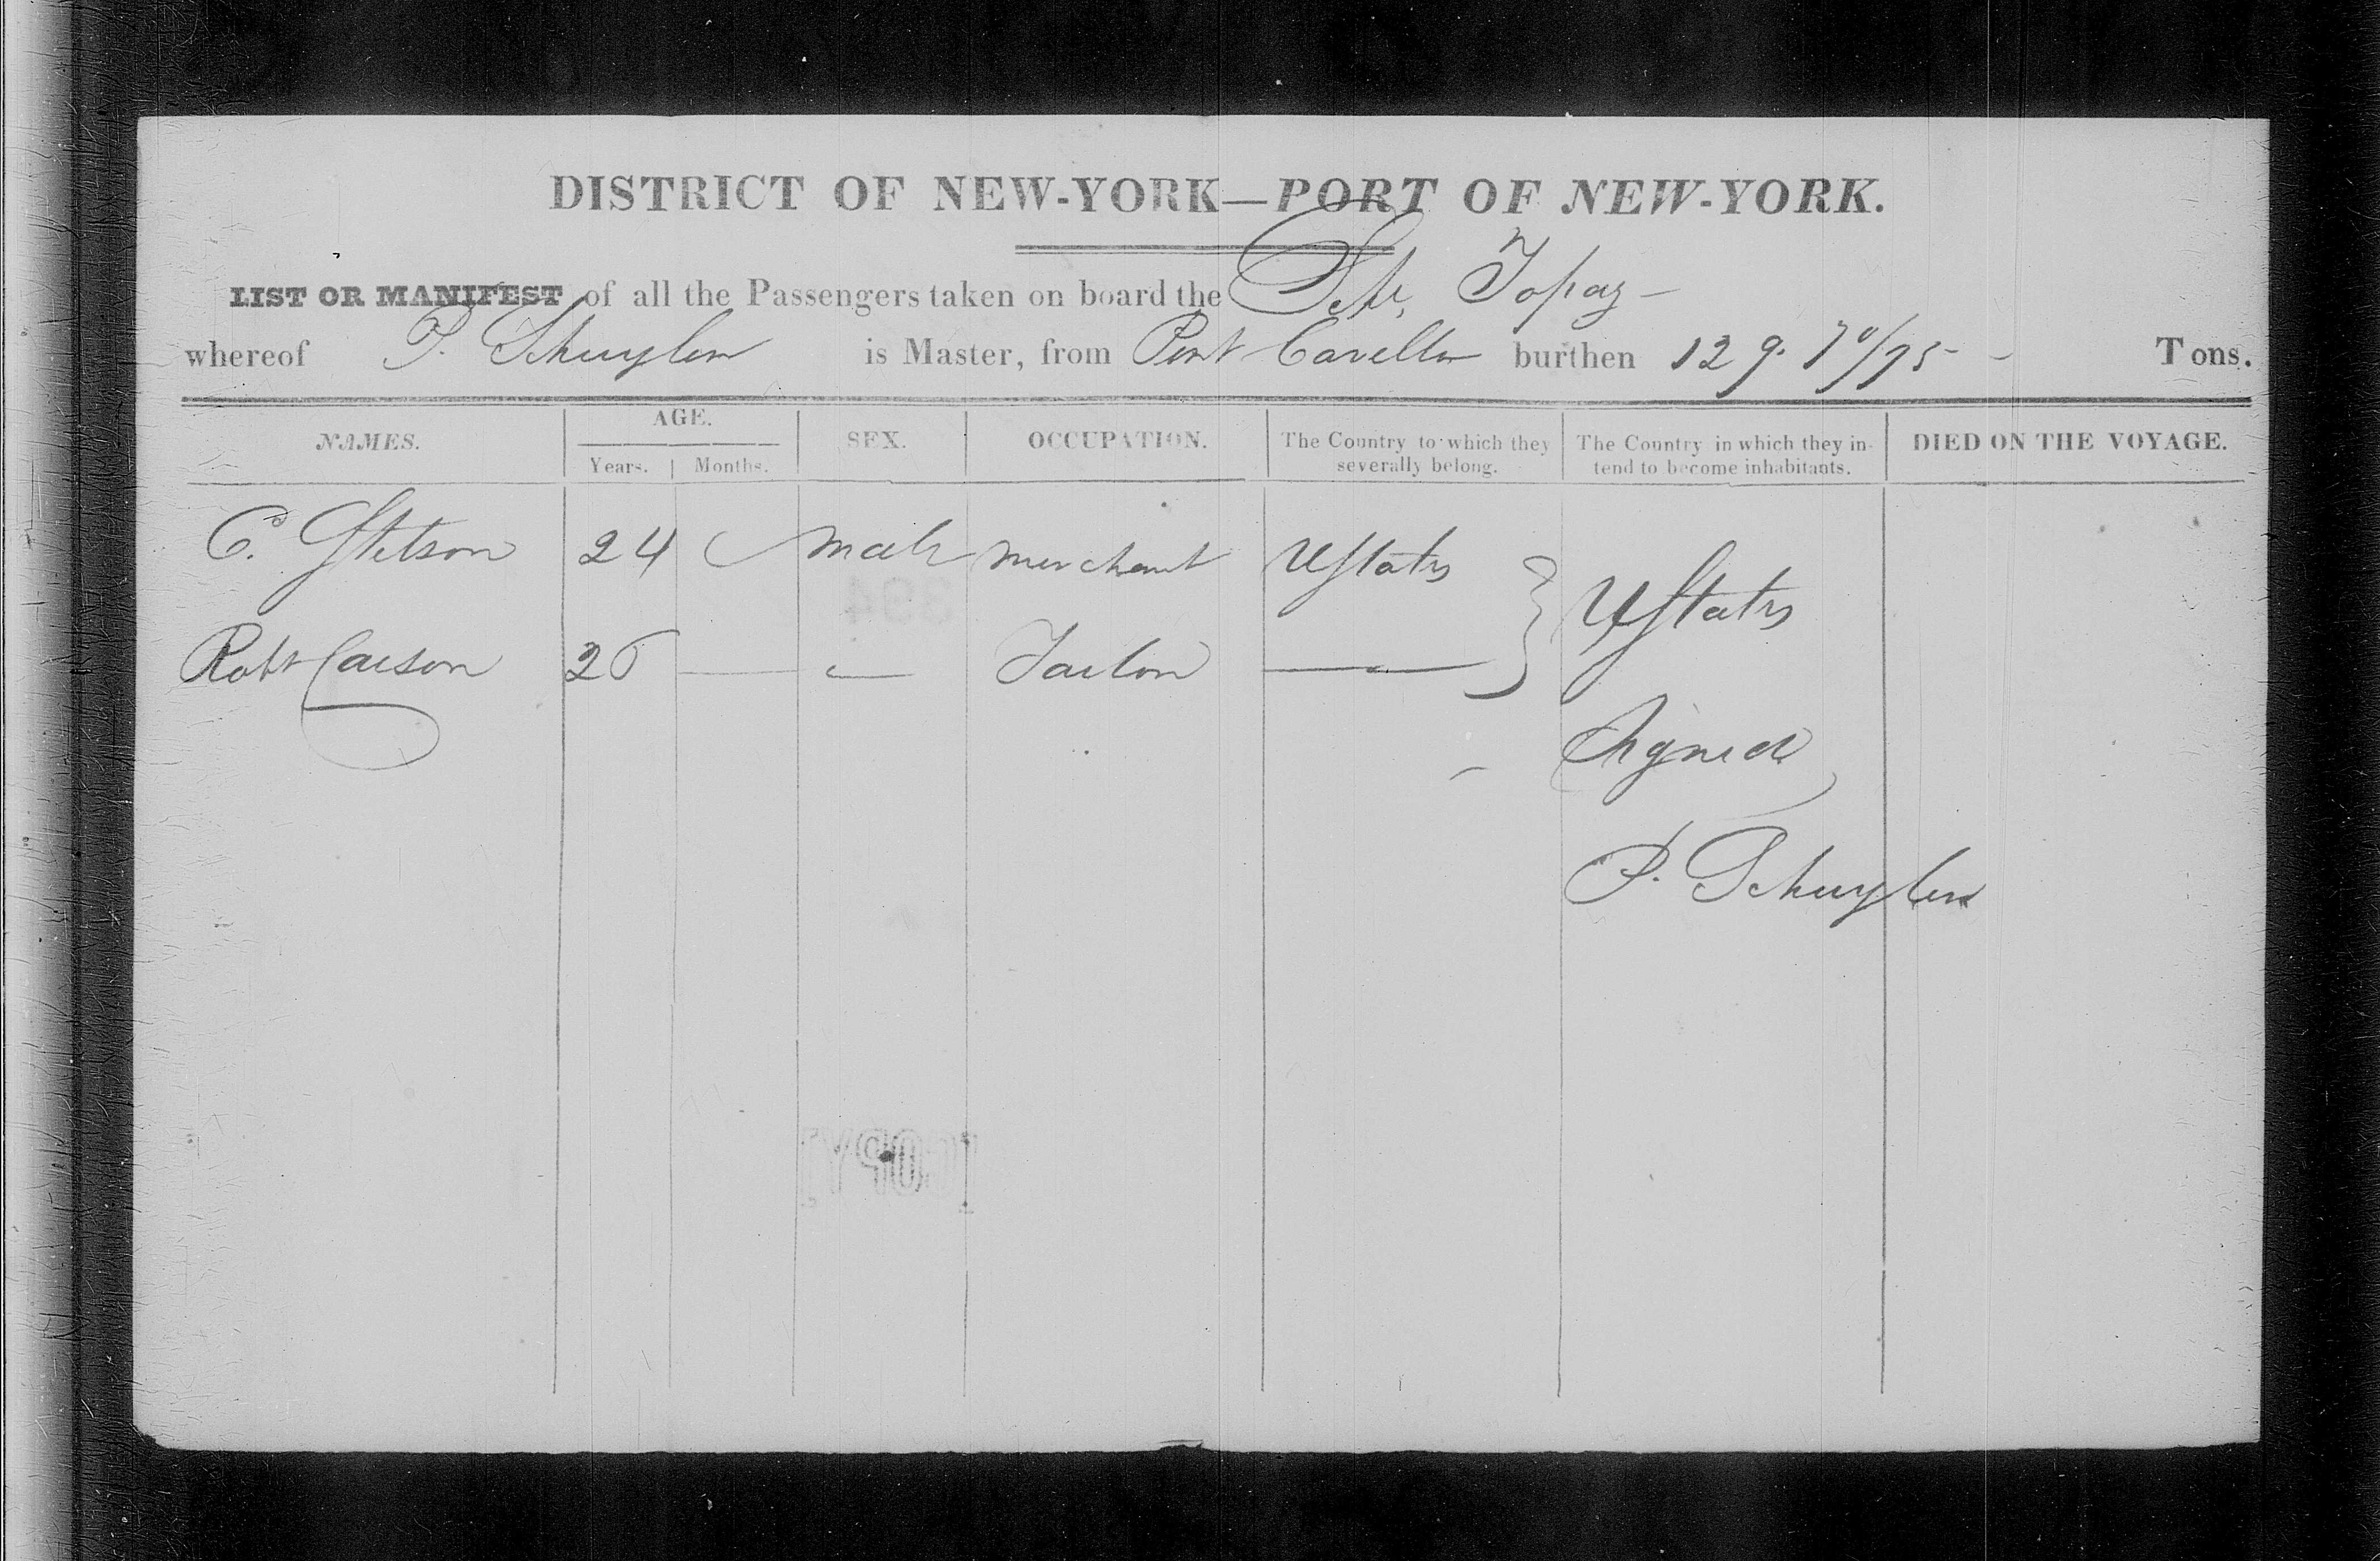 DISTRICT OF NEW-YORK—PORT OF NEW-YORK.
LIST OR MANIFEST of all the Passengers taken on board the Schr, Topaz –
whereof P. Schuyler is Master, from Port Cavello burthen 129. 70/95 - - Tons.
NAMES. AGE. SEX. OCCUPATION. The Country to which they severally belong. The Country in which they in- tend to become inhabitants. DIED ON THE VOYAGE.
Years. Months.
C. Stetson 24 male merchant UStates
UStates
Robt Carson 26 — — Tailor —
Signed
P. Schuyler
394
COPY